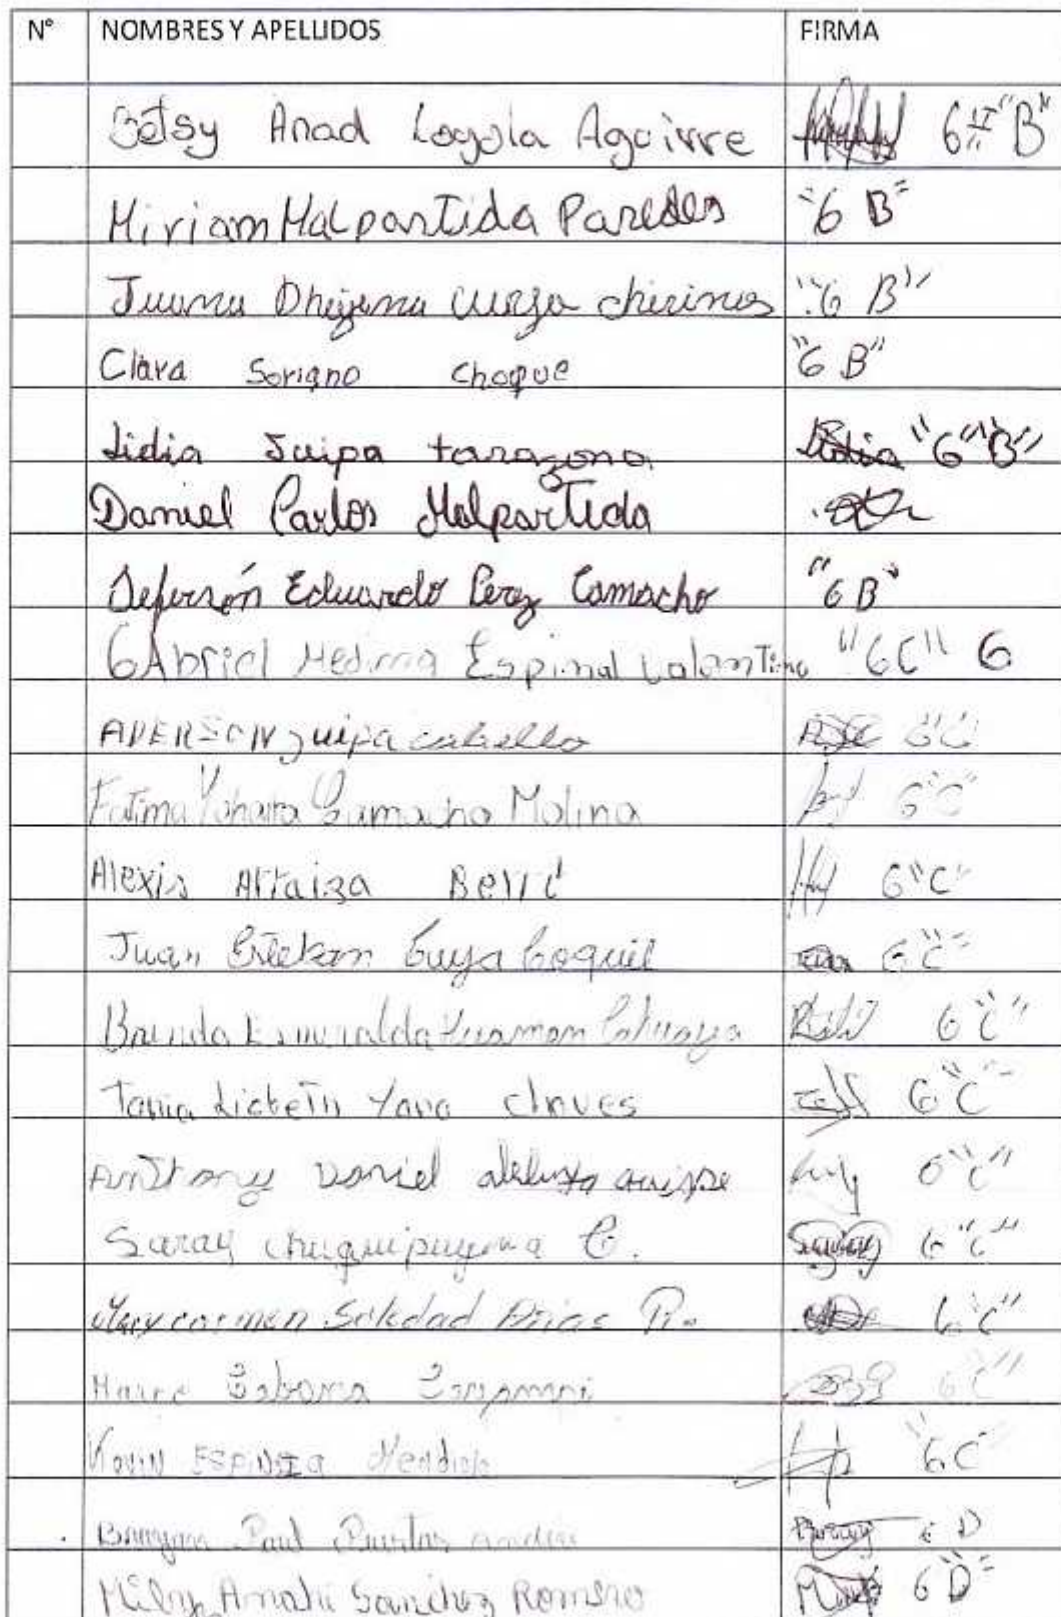 N° NOMBRES Y APELLIDOS FIRMA
Betsy Anad Loyola Aguirre 6 "B"
Miriam Malpartida Paredes "6 B"
Juana Dheyema chirinos "6 B"
Clara Soriano Choque "6 B"
Lidia Juipa tarazona Lidia "6" "B"
Daniel Carlos Malpartida
Jefersón Eduardo Perez Camacho "6 B"
GAbriel Medina Espinal Valantino "6C" 6
ADERSON juipa cabello 6"C"
Fatima Yohaira Camacho Molina 6"C"
Alexis Artaiza 6"C"
Juan Esteban 6"C"
Brenda Esmeralda Huaman 6"C"
Tania Lisbeth Yana chaves 6"C"
Anttony Daniel quispe 6"C"
Saray C. Saray 6"C"
Marycarmen Soledad Arias P. 6"C"
6"C"
Kevin ESPINOZA "6C"
Paul 6 D
Mily Amahi Sanchez Romero 6"D"